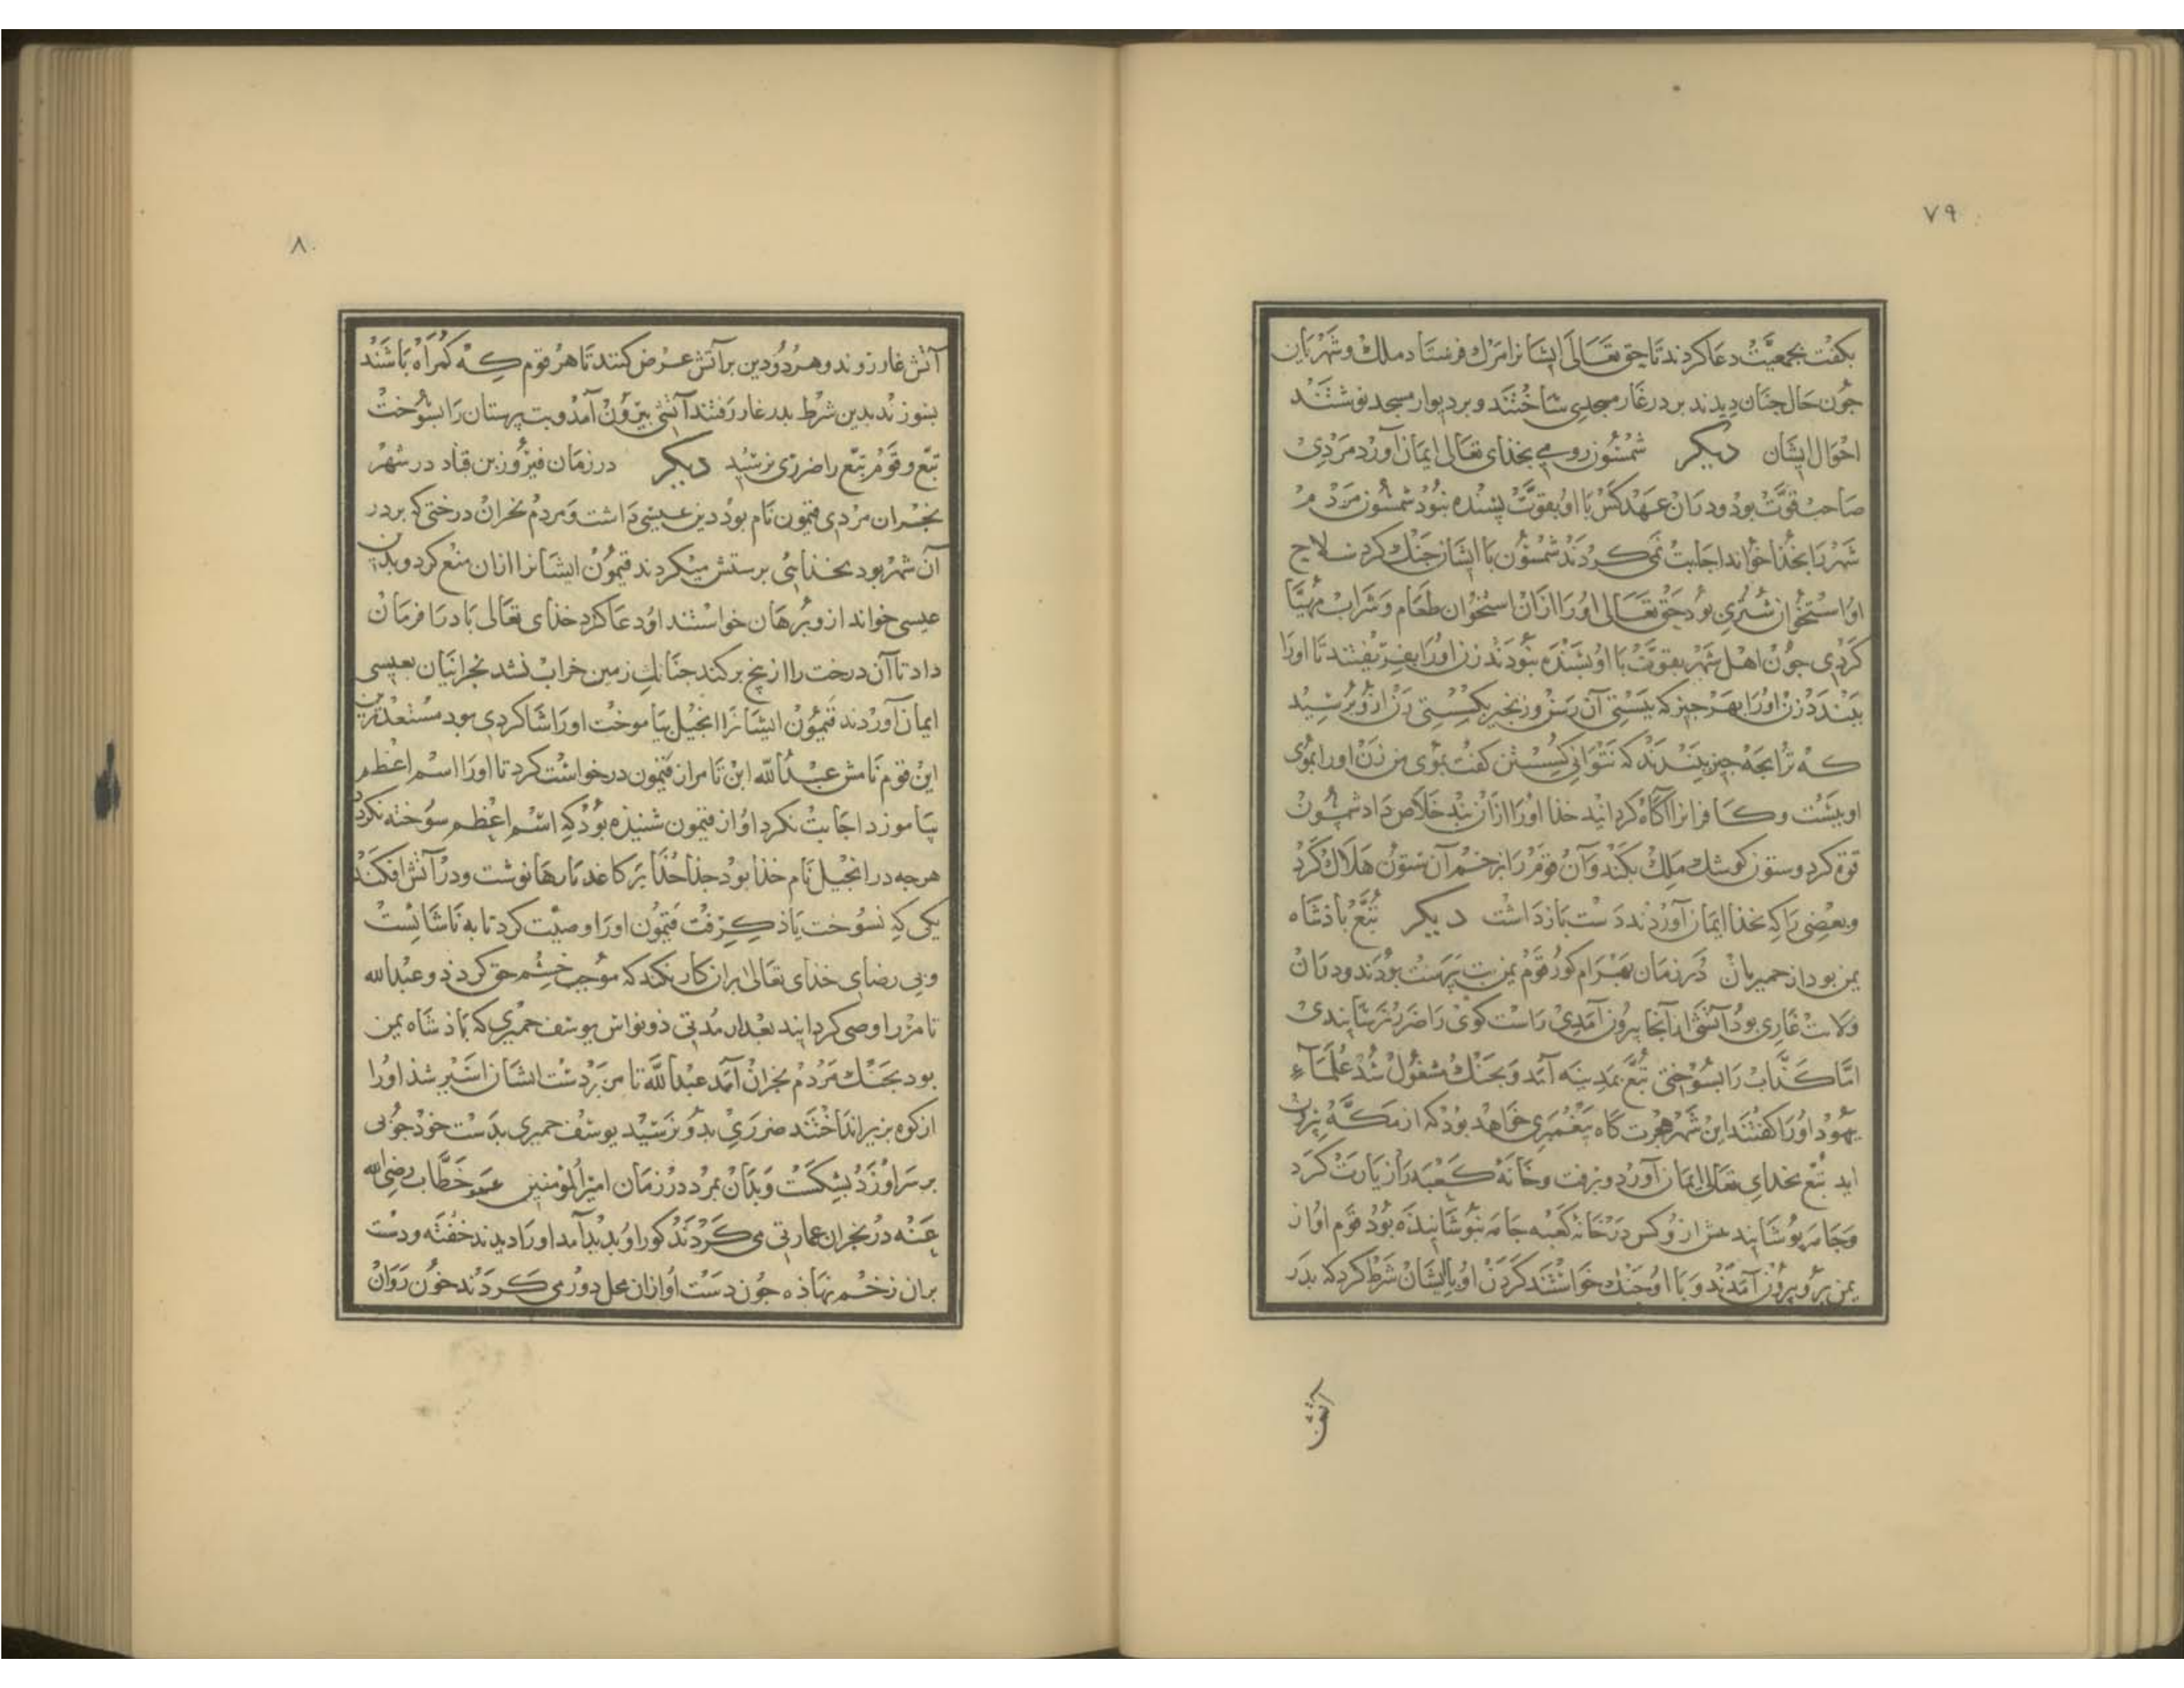 ۷۹
بکفت بجمعیّت دعا کردند تا حق تعالی ایشانرا مرک فرستاد ملک و شهریان
جون حال جنان دیدند بر در غار مسجدی ساختند و بر دیوار مسجد نوشتند
احوال ایشان دیکر شمسون رومی بخدای تعالی ایمان آورد مردی
صاحب قوّت بود و دران عهد کس با او بقوّت بسنده نبود شمسون مردم
شهر را بخدا خواند اجابت نمی کردند شمسون با ایشان جنک کرد سلاح
او استخوان شتری بود حق تعالی او را ازان استخوان طعام و شراب مهیّا
کردی جون اهل شهر بقوّت با او بسنده نبودند زن او را بفریفتند تا او را
ببندد زن او را بهر جیز که ببستی آن رسن و زنجیر بکسستی زن ازو برسید
که ترا بجه جیز ببندند که نتوانی کسستن کفت بموی من زن او را بموی
او ببست و کافرانرا آکاه کردانید خدا او را ازان بند خلاص داد شمسون
قوة کرد و ستون کوشک ملک بکند و آن قوم را بزخم آن ستون هلاک کرد
و بعضی را که بخدا ایمان آوردند دست بازداشت دیکر تبّع باذشاه
یمن بود از حمیریان در زمان بهرام کور قوم یمن بت پرست بودند و دران
ولایت غاری بود آتشی از آنجا بیرون آمدی راست کوی را ضرر نرسانیدی
امّا کذّاب را بسوختی تبّع بمدینه آمد و بجنک مشغول شد علماء
یهود او را کفتند این شهر هجرت کاه پیغمبری خواهد بود که از مکّه بیرون
اید تبّع بخدای تعالی ایمان آورد و برفت و خانهٔ کعبه را زیارت کرد
و جامه پوشانید پیش ازو کس در خانه کعبه جامه نپوشانیذه بود قوم او از
یمن برو بیرون آمدند و با او جنک خواستند کردن او با ایشان شرط کرد که بدر
آتش
۸۰
آتش غار روند و هر دو دین بر آتش عرض کنند تا هر قوم که کمراه باشند
بسوزند بدین شرط بدر غار رفتند آتشی بیرون آمد و بت پرستان را بسوخت
تبّع و قوم تبّع را ضرری نرسید دیکر در زمان فیروز بن قباد در شهر
نجران مردی فتیمون نام بود دین عیسی داشت و مردم نجران درختی که بر در
آن شهر بود بخدایی برستش میکردند فتیمون ایشانرا ازان منع کرد و بدین
عیسی خواند ازو برهان خواستند او دعا کرد خدای تعالی باد را فرمان
داد تا آن درخت را از بیخ برکند جنانک زمین خراب نشد نجرانیان بعیسی
ایمان آوردند فتیمون ایشانرا انجیل بیاموخت او را شاکردی بود مستعدترین
این قوم نامش عبدالله ابن تامر از فتیمون درخواست کرد تا او را اسم اعظم
بیاموزد اجابت نکرد او از فتیمون شنیده بود که اسم اعظم سوخته نکردد
هرجه در انجیل نام خدا بود جدا جدا بر کاغد پارها نوشت و در آتش افکند
یکی که نسوخت یاذ کرفت فتیمون او را وصیّت کرد تا به ناشایست
و بی رضای خدای تعالی بران کار نکند که موجب خشم حق کردذ و عبدالله
تامر را وصی کردانید بعد از مدتی ذونواس یوسف حمیری که باذشاه یمن
بود بجنک مردم نجران آمد عبدالله تامر بر دست ایشان اسیر شذ او را
از کوه بزیر انداختند ضرری بدو نرسید یوسف حمیری بدست خوذ جوبی
بر سر او زد بشکست و بدان بمرد در زمان امیرالمومنین عمر خطّاب رضی الله
عنه در نجران عمارتی می کردند کور او بدید آمد او را دیدند خفته و دست
بران زخم نهاذه جون دست او ازان محل دور می کردند خون روان